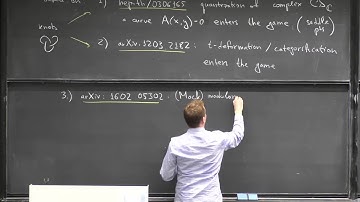 knots
hep-th/0306165 quantization of complex CS
a curve A(x,y)=0 enters the game (saddle pt)
2) arXiv: 1203.2182 : t-deformation / categorification
enters the game
3.) arXiv: 1602.05302 : (Mock) modular